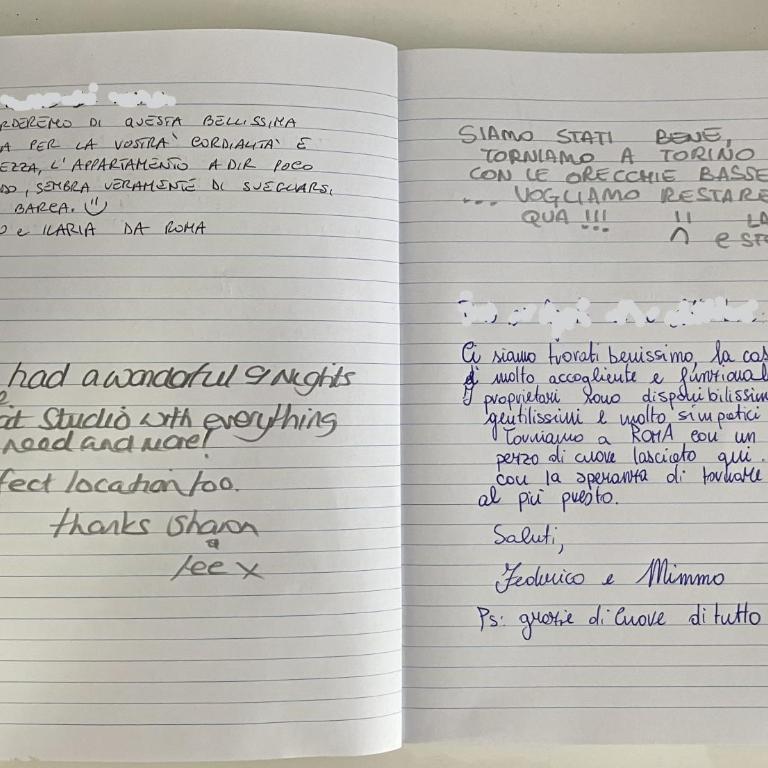 RDEREMO DI QUESTA BELLISSIMA
A PER LA VOSTRA' CORDIALITA' E
EZZA, L'APPARTAMENTO A DIR POCO
DO, SEMBRA VERAMENTE DI SVEGLIARSI
BARCA.
O e ILARIA DA ROMA
had a wonderful 9 Nights
e
at Studio with everything
need and more!
fect location too.
thanks Sharon
&
Lee x
SIAMO STATI BENE,
TORNIAMO A TORINO
CON LE ORECCHIE BASSE
... VOGLIAMO RESTARE
QUA !!! LA
e STE
Ci siamo trovati benissimo, la cas
è molto accogliente e funzional
I proprietari sono disponibilissim
gentilissimi e molto simpatici
Torniamo a ROMA con un
pezzo di cuore lasciato qui.
con la speranza di tornare
al più presto.
Saluti,
Federico e Mimmo
Ps: grazie di Cuore di tutto